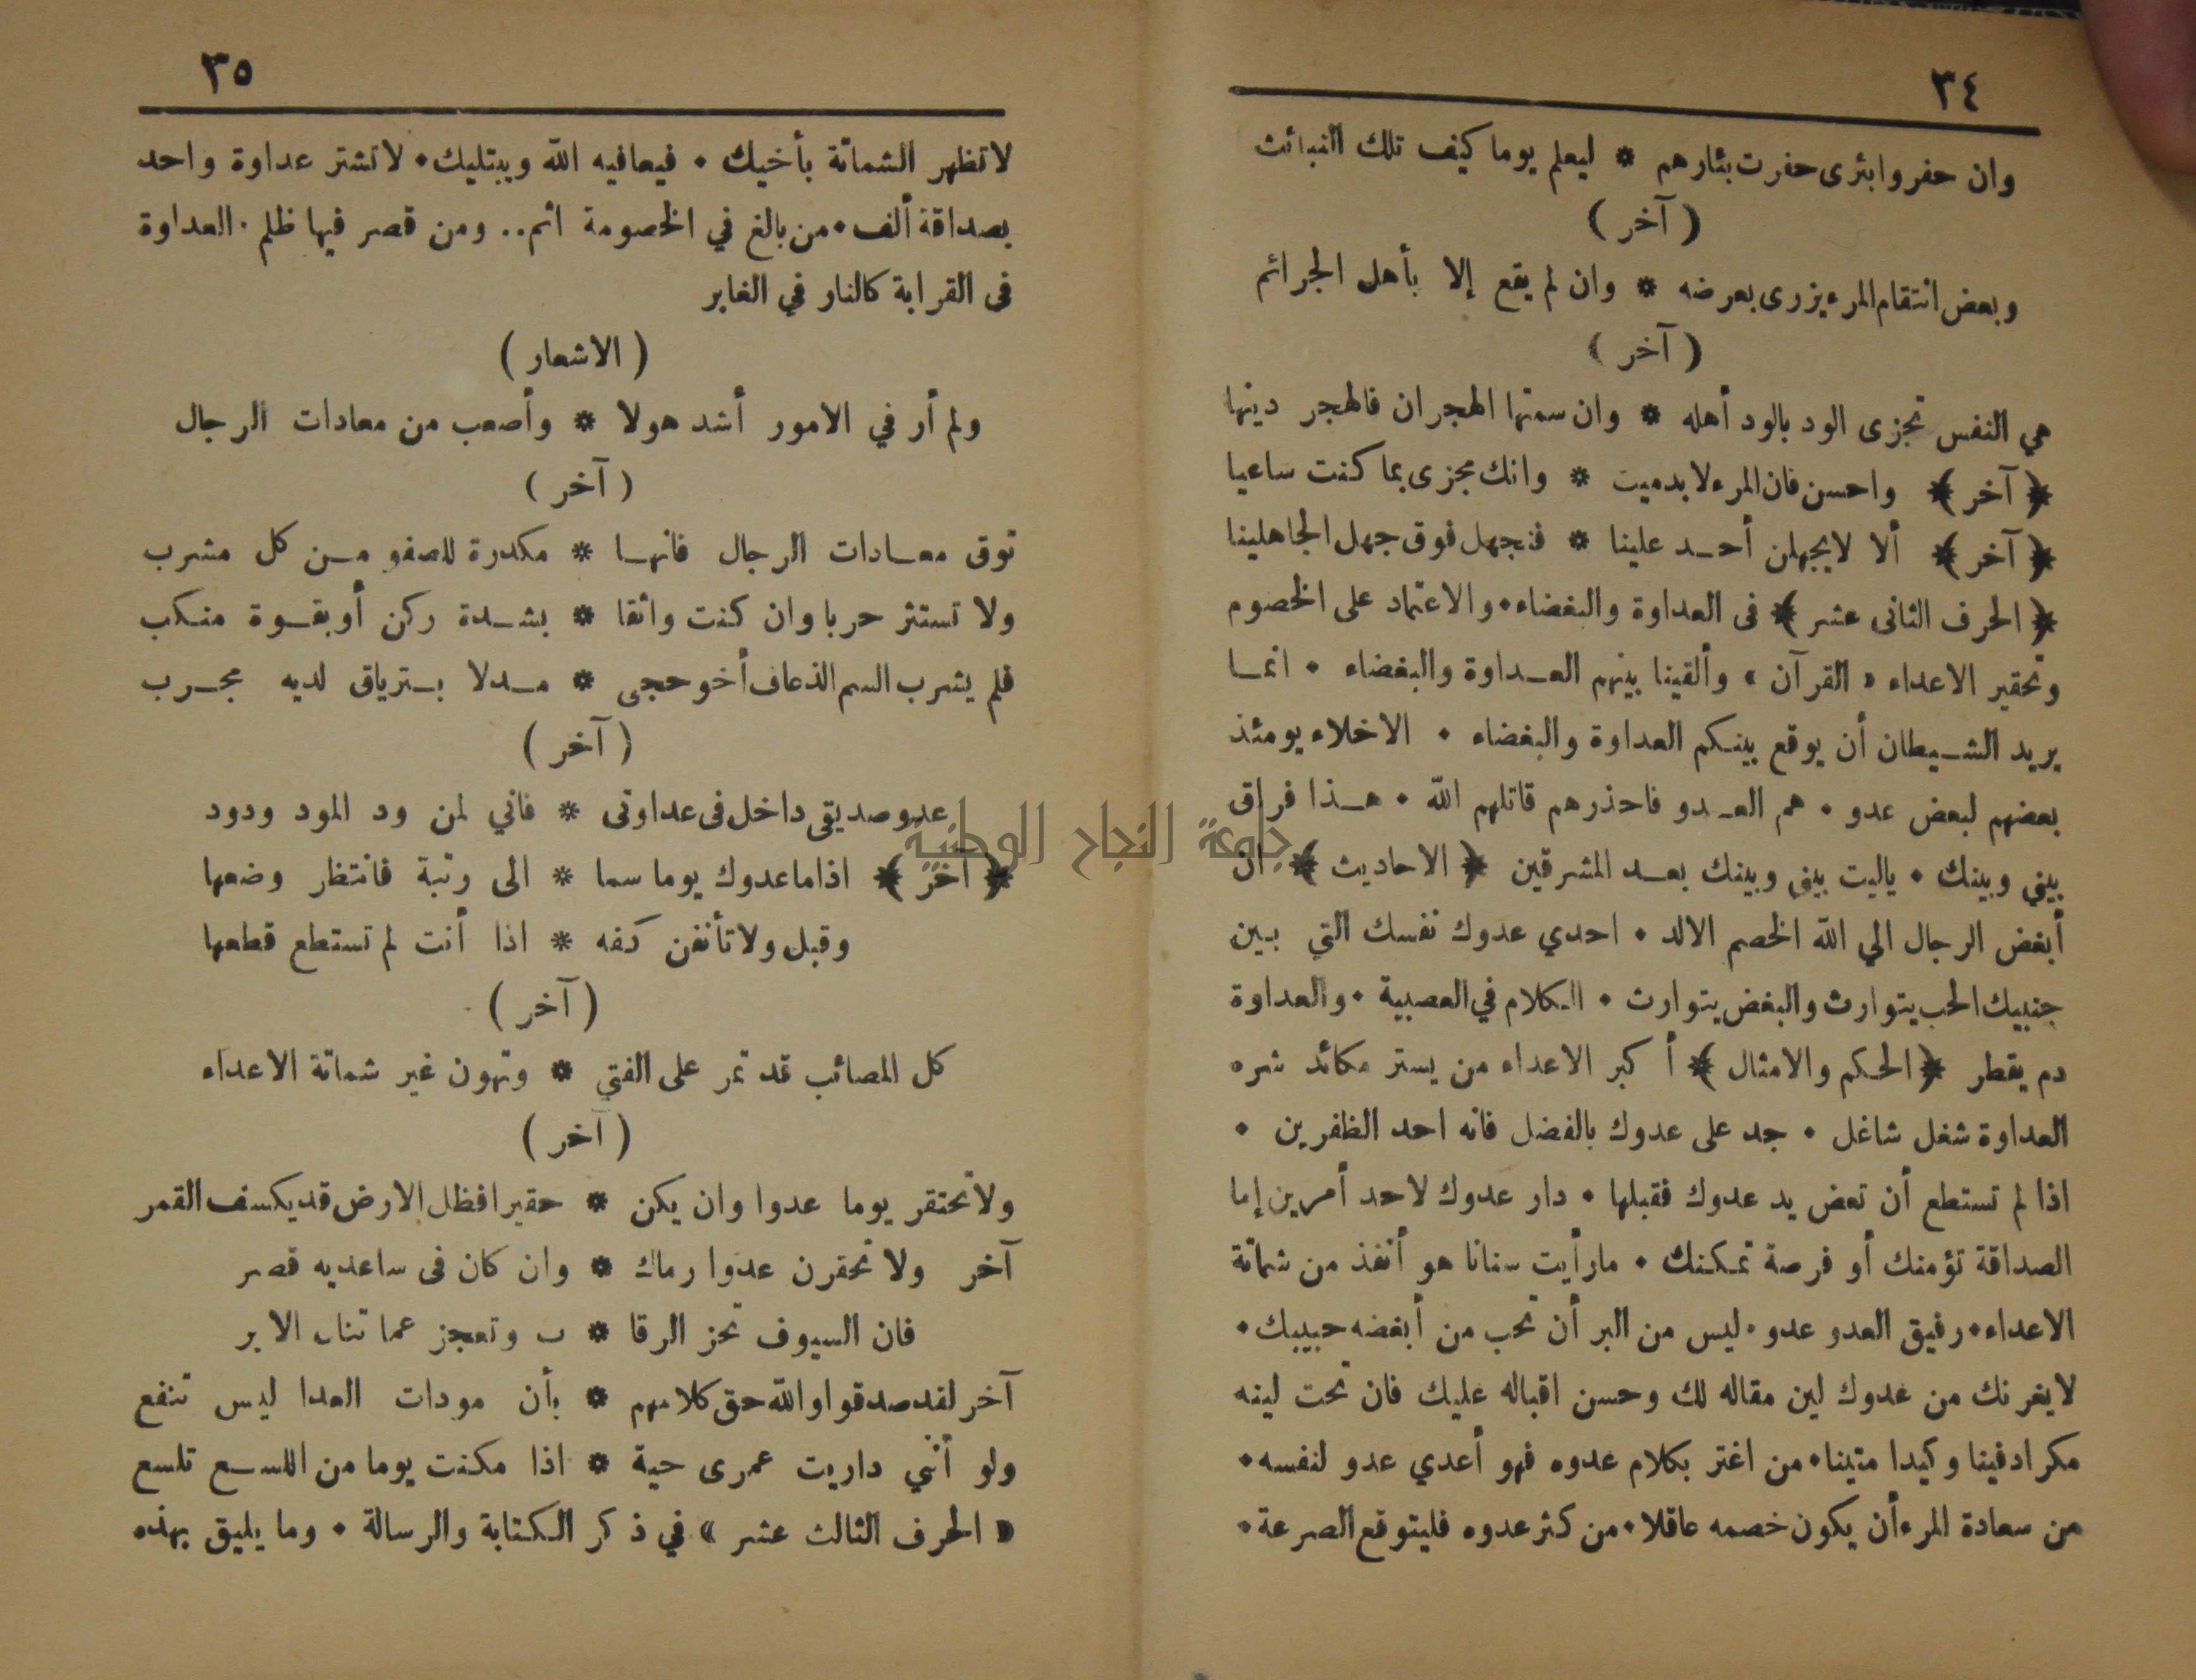 ٣٤
وان حفروا بئرى حفرت بئارهم * ليعلم يوما كيف تلك النبائث
( آخر )
وبعض انتقام المرء يزرى بعرضه * وان لم يقع إلا بأهل الجرائم
( آخر )
هي النفس تجزى الود بالود أهله * وان سمتها الهجران فالهجر دينها
﴿ آخر ﴾ واحسن فان المرء لا بد ميت * وانك مجزى بما كنت ساعيا
﴿ آخر ﴾ ألا لا يجهلن أحد علينا * فنجهل فوق جهل الجاهلينا
﴿ الحرف الثانى عشر ﴾ فى العداوة والبغضاء • والاعتماد على الخصوم
وتحقير الاعداء « القرآن » وألقينا بينهم العداوة والبغضاء • انما
يريد الشيطان أن يوقع بينكم العداوة والبغضاء • الاخلاء يومئذ
بعضهم لبعض عدو • هم العدو فاحذرهم قاتلهم الله • هذا فراق
بيني وبينك • ياليت بينى وبينك بعد المشرقين ﴿ الاحاديث ﴾ ان
أبغض الرجال الي الله الخصم الالد • احدي عدوك نفسك التي بين
جنبيك الحب يتوارث والبغض يتوارث • الكلام في العصبية • والعداوة
دم يقطر ﴿ الحكم والامثال ﴾ أكبر الاعداء من يستر مكائد شره
العداوة شغل شاغل • جد على عدوك بالفضل فانه احد الظفرين •
اذا لم تستطع أن تعض يد عدوك فقبلها • دار عدوك لاحد أمرين إما
الصداقة تؤمنك أو فرصة تمكنك • مارأيت سنانا هو أنفذ من شماتة
الاعداء • رفيق العدو عدو • ليس من البر أن تحب من أبغضه حبيبك •
لايغرنك من عدوك لين مقاله لك وحسن اقباله عليك فان تحت لينه
مكرا دفينا وكيدا متينا • من اغتر بكلام عدوه فهو أعدي عدو لنفسه •
من سعادة المرء أن يكون خصمه عاقلا • من كثر عدوه فليتوقع الصرعة •
٣٥
لاتظهر الشماتة بأخيك • فيعافيه الله ويبتليك • لاتشتر عداوة واحد
بصداقة ألف • من بالغ في الخصومة اثم .. ومن قصر فيها ظلم • العداوة
فى القرابة كالنار في الغابر
( الاشعار )
ولم أر في الامور أشد هولا * وأصعب من معادات الرجال
( آخر )
توق معادات الرجال فانها * مكدرة للصفو من كل مشرب
ولا تستثر حربا وان كنت واثقا * بشدة ركن أو بقوة منكب
فلم يشرب السم الذعاف أخو حجى * مدلا بترياق لديه مجرب
( آخر )
عدو صديقى داخل فى عداوتى * فاني لمن ود المود ودود
﴿ آخر ﴾ اذا ما عدوك يوما سما * الى رتبة فانتظر وضعها
وقبل ولا تأنفن كفه * اذا أنت لم تستطع قطعها
( آخر )
كل المصائب قد تمر على الفتي * وتهون غير شماتة الاعداء
( آخر )
ولا تحتقر يوما عدوا وان يكن * حقيرا فظل الارض قد يكسف القمر
آخر ولا تحقرن عدوا رماك * وان كان فى ساعديه قصر
فان السيوف تحز الرقا * ب وتعجز عما تنال الابر
آخر لقد صدقوا والله حق كلامهم * بأن مودات العدا ليس تنفع
ولو أنني داريت عمرى حية * اذا مكنت يوما من اللسع تلسع
« الحرف الثالث عشر » في ذكر الكتابة والرسالة • وما يليق بهذه
جامعة النجاح الوطنية